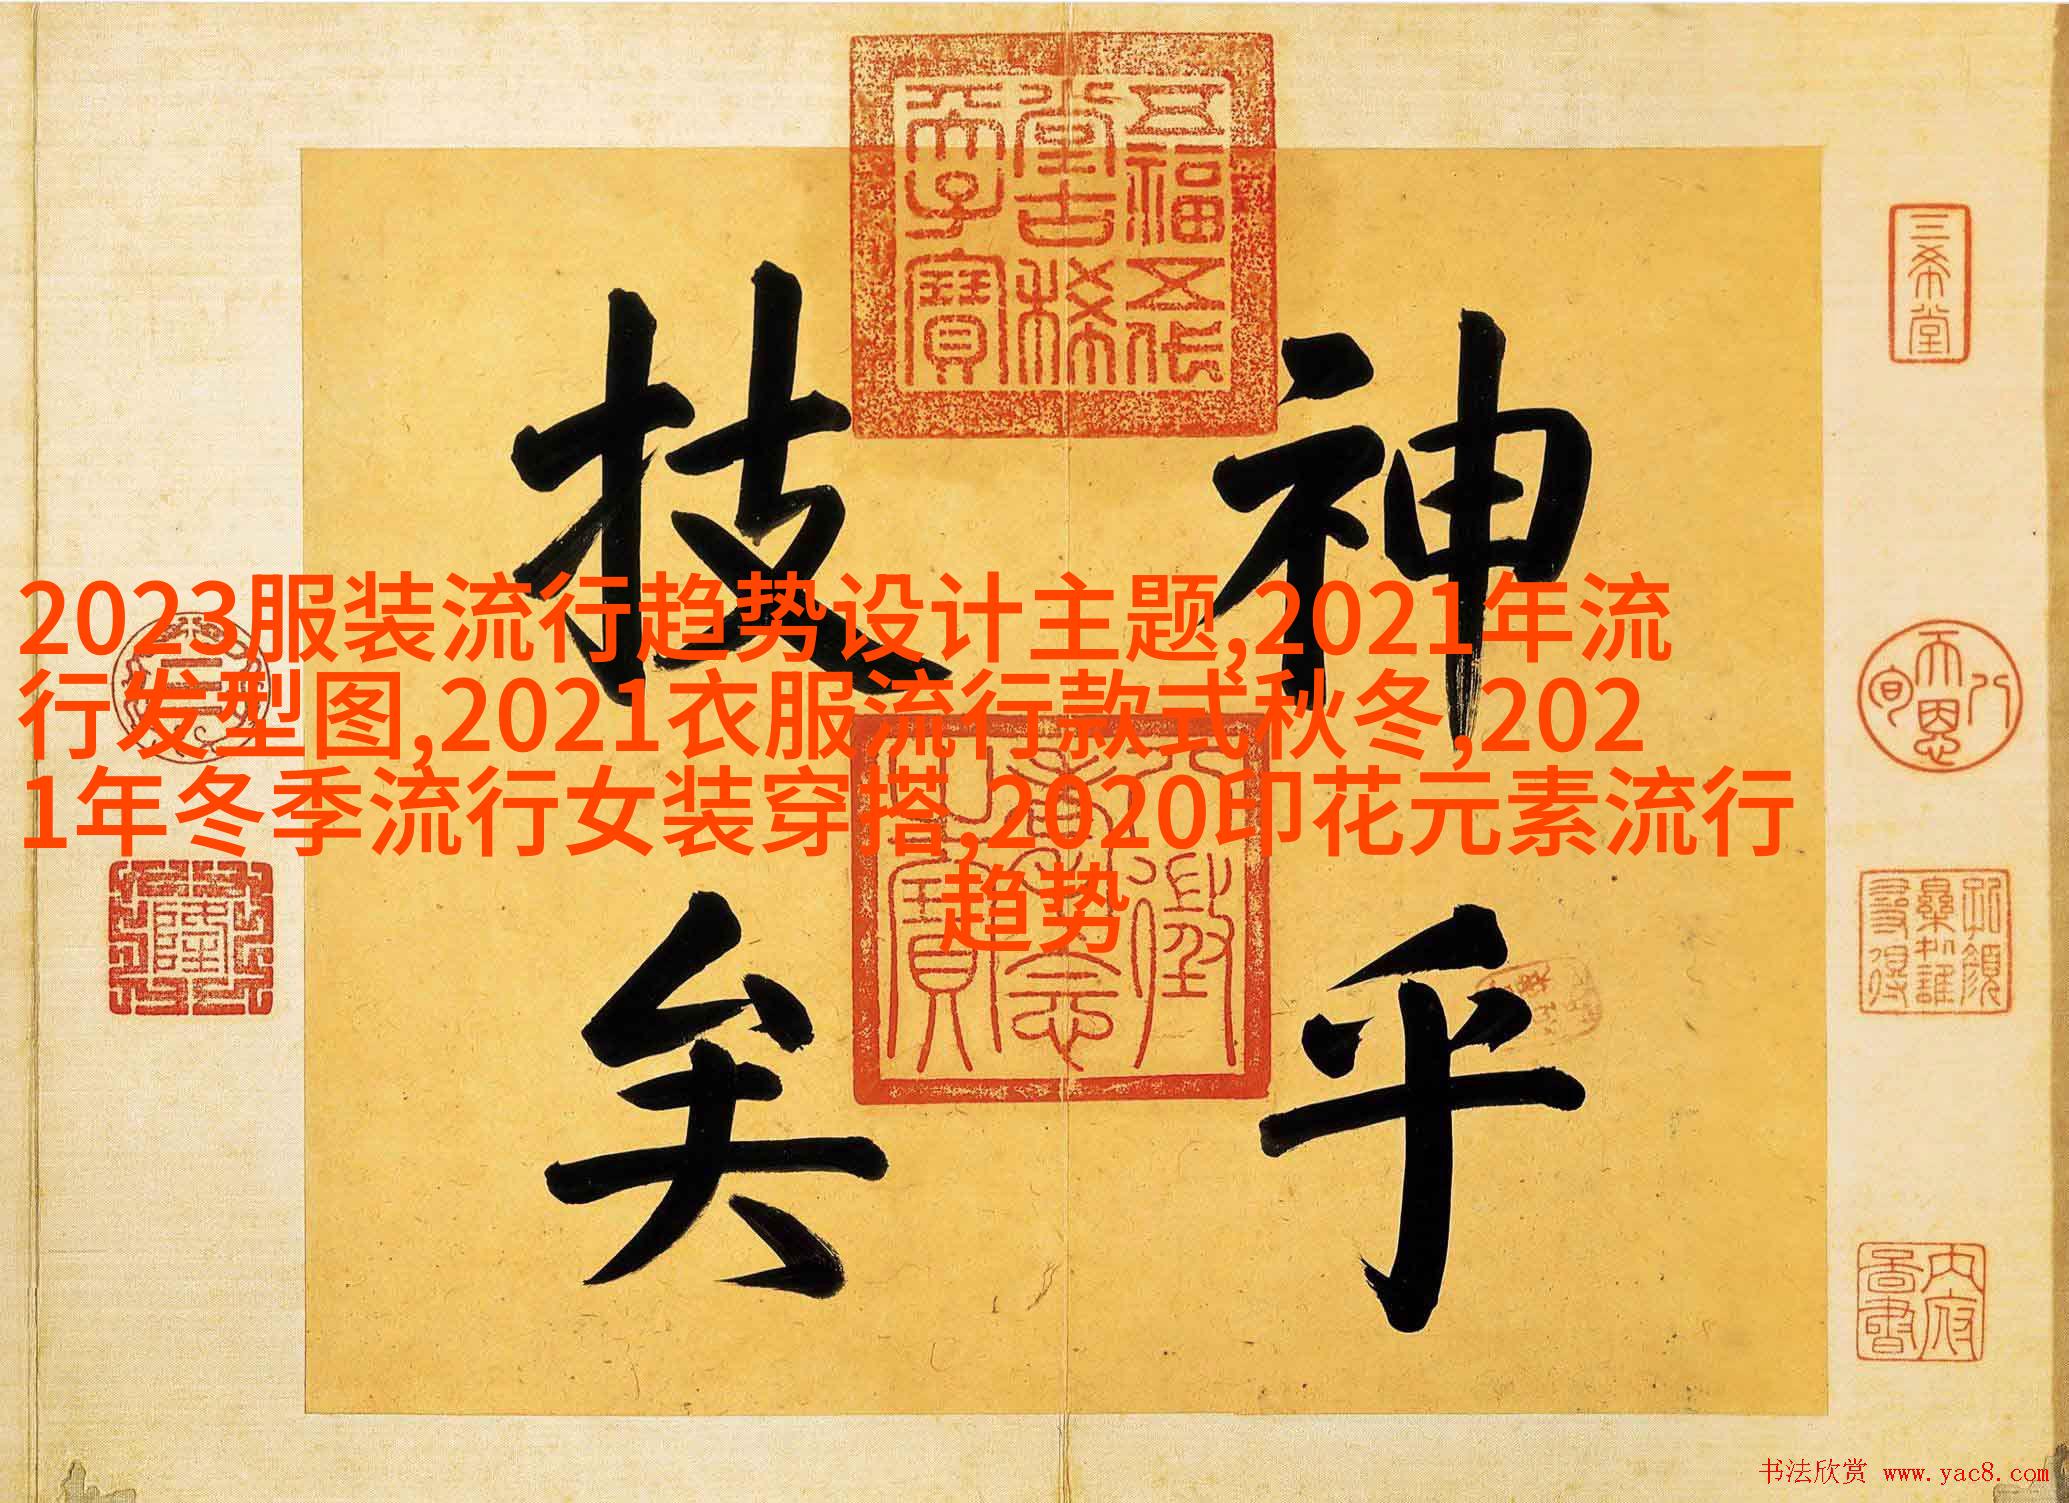 神乎
技矣
五福五代
堂古稀
天子寶
八徵
耄念
之寶
三希堂
八
天恩
旬
內府
書
2023服装流行趋势设计主题,2021年流
行发型图,2021衣服流行款式秋冬,202
1年冬季流行女装穿搭,2020印花元素流行
趋势
书法欣赏 www.yac8.com